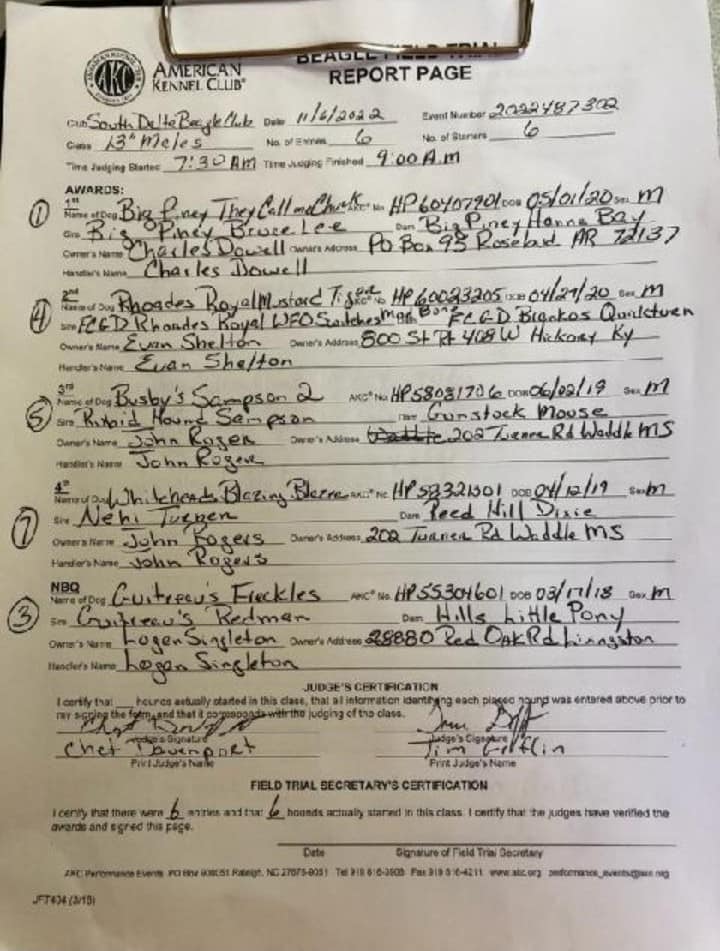 BEAGLE FIELD TRIAL
REPORT PAGE
AKC
AMERICAN
KENNEL CLUB®
Club South Delta Beagle Club Date 11/6/2022 Event Number 2022487302
Class 13" Males No. of Entries 6 No. of Starters 6
Time Judging Started 7:30 AM Time Judging Finished 9:00 A.M
AWARDS:
1st
① Name of Dog Big Piney They Call me Chuck AKC® No. HP60407901 DOB 05/01/20 Sex M
Sire Big Piney Bruce Lee Dam Big Piney Hanna Bay
Owner's Name Charles Dowell Owner's Address PO Box 93 Rosebud AR 72137
Handler's Name Charles Dowell
2nd
④ Name of Dog Rhoades Royal Mustard Tiger AKC® No. HP60023205 DOB 04/27/20 Sex M
Sire FCGD Rhoades Royal UFO Switches Dam FCGD Brackos
Owner's Name Evan Shelton Owner's Address 800 St Rt 408 W Hickory Ky
Handler's Name Evan Shelton
3rd
⑤ Name of Dog Busby's Sampson 2 AKC® No. HP58031706 DOB 06/02/19 Sex M
Sire Rabid Hound Sampson Dam Gunstock Mouse
Owner's Name John Roger Owner's Address 202 Turner Rd Waddle MS
Handler's Name John Rogers
4th
⑦ Name of Dog Whiteheads Blazing Blaze AKC® No. HP58321301 DOB 04/12/19 Sex M
Sire Nehi Turner Dam Reed Hill Dixie
Owner's Name John Rogers Owner's Address 202 Turner Rd Waddle MS
Handler's Name John Rogers
NBQ
③ Name of Dog Guitreau's Freckles AKC® No. HP55304601 DOB 03/17/18 Sex M
Sire Guitreau's Redman Dam Hills Little Pony
Owner's Name Logan Singleton Owner's Address 28880 Red Oak Rd Livingston
Handler's Name Logan Singleton
JUDGE'S CERTIFICATION
I certify that ___ hounds actually started in this class, that all information identifying each placed hound was entered above prior to
my signing the form, and that it corresponds with the judging of the class.
Judge's Signature Judge's Signature
Chet Davenport Tim Griffin
Print Judge's Name Print Judge's Name
FIELD TRIAL SECRETARY'S CERTIFICATION
I certify that there were 6 entries and that 6 hounds actually started in this class. I certify that the judges have verified the
awards and signed this page.
Date Signature of Field Trial Secretary
AKC Performance Events PO Box 900051 Raleigh, NC 27675-9051 Tel 919 816-3908 Fax 919 816-4211 www.akc.org performance_events@akc.org
JFT404 (3/15)